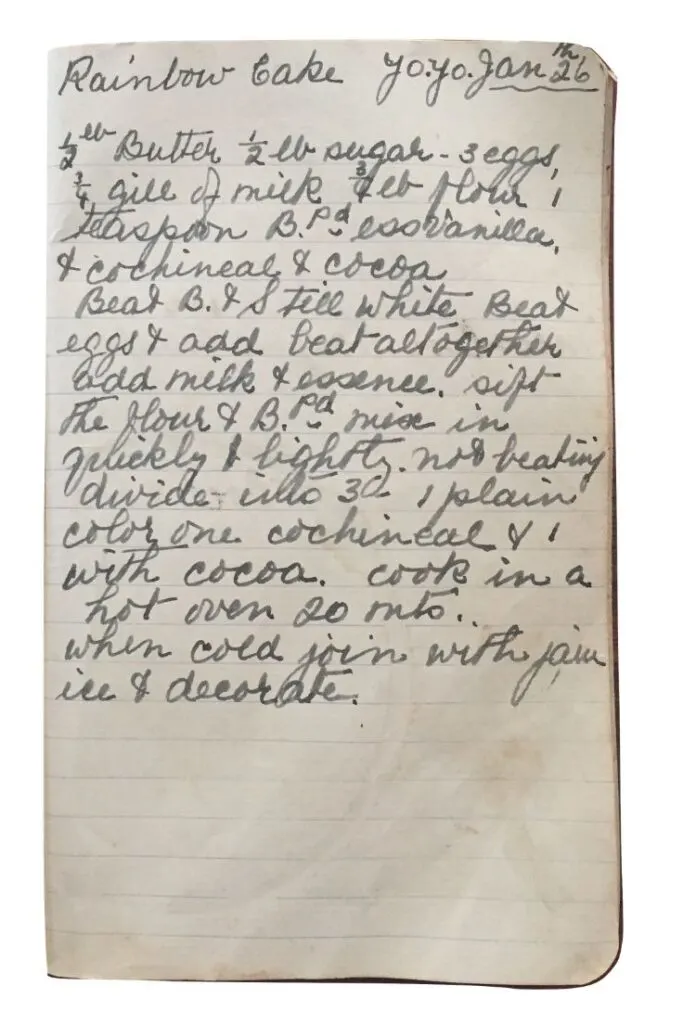 Rainbow Cake yo.yo. Jan 26th
½ lb Butter ½ lb sugar - 3 eggs,
¾ gill of milk ¾ lb flour 1
teaspoon B. Pd ess Vanilla,
& cochineal & cocoa
Beat B. & S till white Beat
eggs & add beat altogether
add milk & essence. sift
the flour & B. Pd mix in
quickly & lightly. not beating
divide into 3 - 1 plain
color one cochineal & 1
with cocoa. cook in a
hot oven 20 mts..
when cold join with jam
ice & decorate.